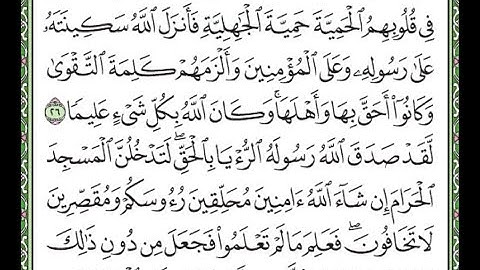 فِى قُلُوبِهِمُ ٱلْحَمِيَّةَ حَمِيَّةَ ٱلْجَٰهِلِيَّةِ فَأَنزَلَ ٱللَّهُ سَكِينَتَهُۥ
عَلَىٰ رَسُولِهِۦ وَعَلَى ٱلْمُؤْمِنِينَ وَأَلْزَمَهُمْ كَلِمَةَ ٱلتَّقْوَىٰ
وَكَانُوٓا۟ أَحَقَّ بِهَا وَأَهْلَهَا ۚ وَكَانَ ٱللَّهُ بِكُلِّ شَىْءٍ عَلِيمًا ٢٦
لَّقَدْ صَدَقَ ٱللَّهُ رَسُولَهُ ٱلرُّءْيَا بِٱلْحَقِّ ۖ لَتَدْخُلُنَّ ٱلْمَسْجِدَ
ٱلْحَرَامَ إِن شَآءَ ٱللَّهُ ءَامِنِينَ مُحَلِّقِينَ رُءُوسَكُمْ وَمُقَصِّرِينَ
لَا تَخَافُونَ ۖ فَعَلِمَ مَا لَمْ تَعْلَمُوا۟ فَجَعَلَ مِن دُونِ ذَٰلِكَ